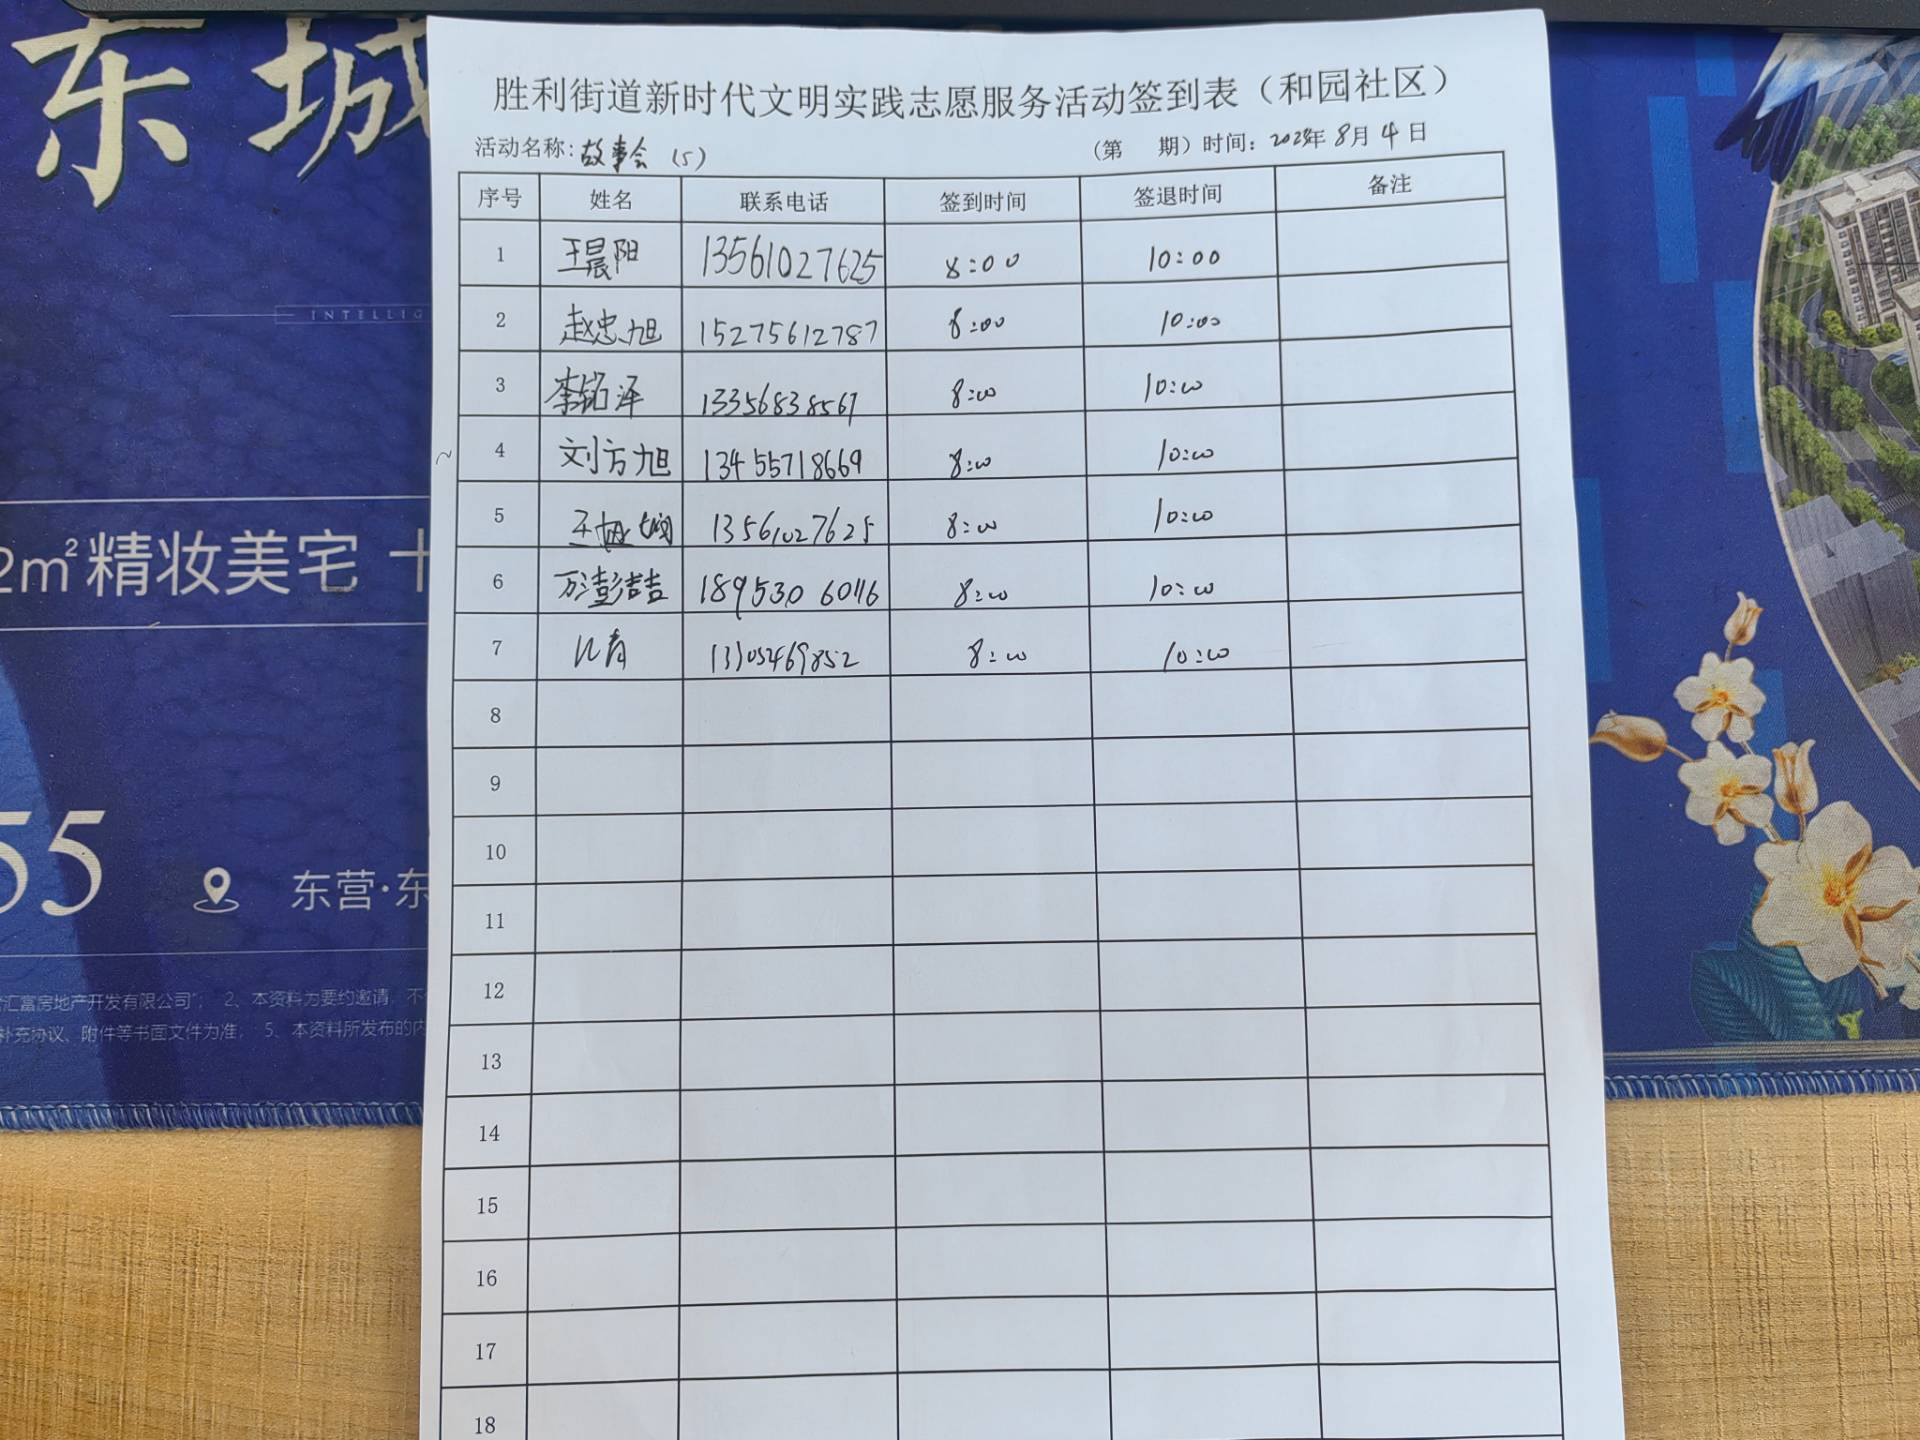 东城
INTELLIG
2m²精妆美宅 十
55
东营·东
汇富房地产开发有限公司"; 2、本资料为要约邀请, 不
补充协议、附件等书面文件为准; 5、本资料所发布的内
胜利街道新时代文明实践志愿服务活动签到表（和园社区）
活动名称: 故事会 (5) (第 期) 时间: 年 8月 4 日
序号 姓名 联系电话 签到时间 签退时间 备注
1 王晨阳 13561027625 8:00 10:00
2 赵忠旭 15275612787 8:00 10:00
3 李铭泽 13356838567 8:00 10:00
4 刘方旭 13455718669 8:00 10:00
5 王 13561027625 8:00 10:00
6 万澎喆 18953060116 8:00 10:00
7 8:00 10:00
8
9
10
11
12
13
14
15
16
17
18